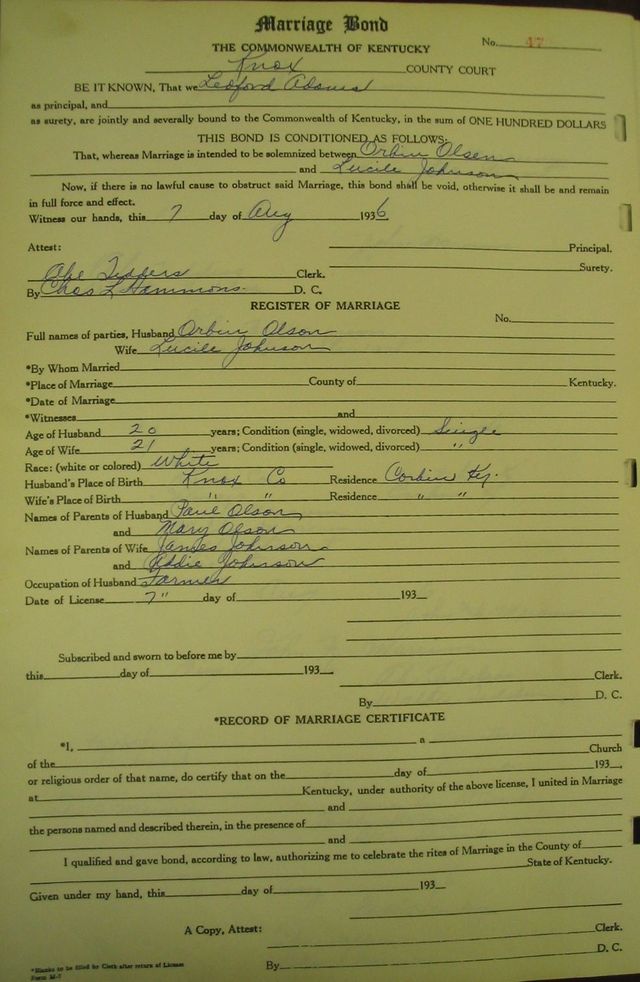 Marriage Bond
No. 47
THE COMMONWEALTH OF KENTUCKY
Knox COUNTY COURT
BE IT KNOWN, That we Ledford Adams
as principal, and
as surety, are jointly and severally bound to the Commonwealth of Kentucky, in the sum of ONE HUNDRED DOLLARS
THIS BOND IS CONDITIONED AS FOLLOWS:
That, whereas Marriage is intended to be solemnized between Orbin Olsen
and Lucile Johnson
Now, if there is no lawful cause to obstruct said Marriage, this bond shall be void, otherwise it shall be and remain
in full force and effect.
Witness our hands, this 7 day of Aug 1936
Attest: Principal.
Abe Tedders Clerk. Surety.
By Chas L Hammons D. C.
REGISTER OF MARRIAGE
No.
Full names of parties, Husband Orbin Olson
Wife Lucile Johnson
*By Whom Married
*Place of Marriage County of Kentucky.
*Date of Marriage
*Witnesses and
Age of Husband 20 years; Condition (single, widowed, divorced) Single
Age of Wife 21 years; Condition (single, widowed, divorced) "
Race: (white or colored) White
Husband's Place of Birth Knox Co Residence Corbin Ky.
Wife's Place of Birth " " Residence " "
Names of Parents of Husband Paul Olson
and Mary Olson
Names of Parents of Wife James Johnson
and Addie Johnson
Occupation of Husband Farmer
Date of License 7" day of 193
Subscribed and sworn to before me by
this day of 193 Clerk.
By D. C.
*RECORD OF MARRIAGE CERTIFICATE
*I, a
of the Church
or religious order of that name, do certify that on the day of 193 ,
at Kentucky, under authority of the above license, I united in Marriage
and
the persons named and described therein, in the presence of
and
I qualified and gave bond, according to law, authorizing me to celebrate the rites of Marriage in the County of
State of Kentucky.
Given under my hand, this day of 193
A Copy, Attest: Clerk.
By D. C.
*Blanks to be filled by Clerk after return of License
Form M-7